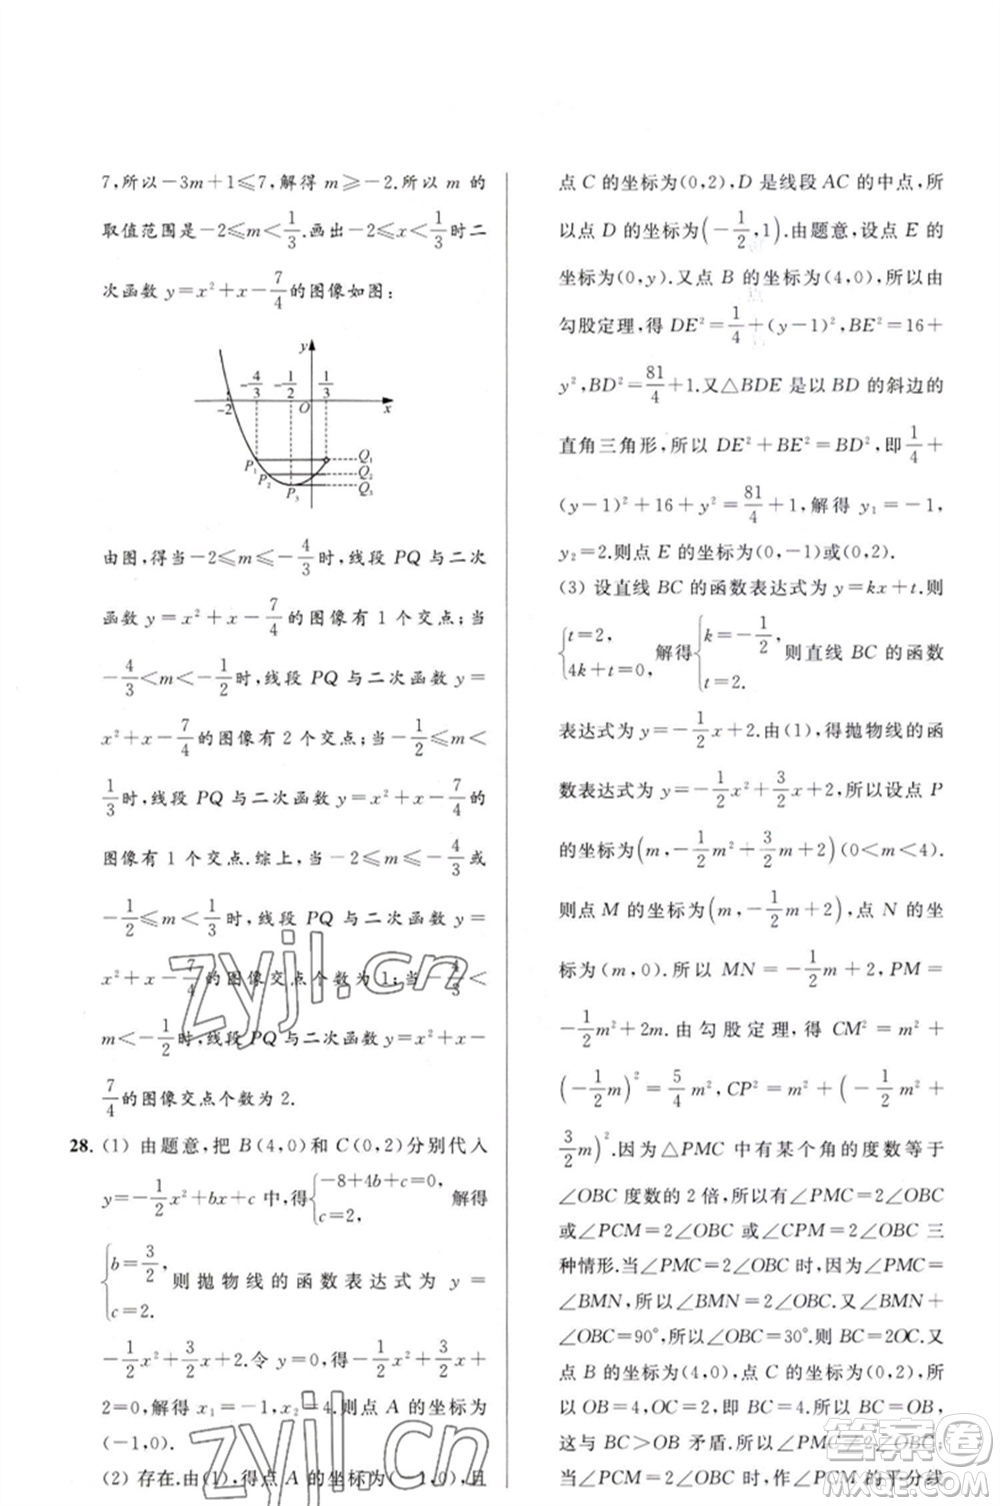 7,所以-3m+1≤7,解得 m≥-2.所以 m 的
取值范围是-2≤m<1/3.画出-2≤x<1/3时二
次函数 y=x²+x-7/4的图像如图:
y
-4/3 -1/2 1/3
-2 O x
P₁ Q₁
P₂ Q₂
P₃ Q₃
由图,得当-2≤m≤-4/3时,线段 PQ 与二次
函数 y=x²+x-7/4的图像有 1 个交点;当
-4/3<m<-1/2时,线段 PQ 与二次函数 y=
x²+x-7/4的图像有 2 个交点;当-1/2≤m<
1/3时,线段 PQ 与二次函数 y=x²+x-7/4的
图像有 1 个交点.综上,当-2≤m≤-4/3或
-1/2≤m<1/3时,线段 PQ 与二次函数 y=
x²+x-7/4的图像交点个数为 1;当-4/3<
m<-1/2时,线段 PQ 与二次函数 y=x²+x-
7/4的图像交点个数为 2.
28. (1) 由题意,把 B(4,0)和 C(0,2)分别代入
y=-1/2x²+bx+c 中,得{-8+4b+c=0, c=2, 解得
{b=3/2, c=2. 则抛物线的函数表达式为 y=
-1/2x²+3/2x+2.令 y=0,得-1/2x²+3/2x+
2=0,解得 x₁=-1,x₂=4.则点 A 的坐标为
(-1,0).
(2) 存在.由(1),得点 A 的坐标为(-1,0),且
点 C 的坐标为(0,2),D 是线段 AC 的中点,所
以点 D 的坐标为(-1/2,1).由题意,设点 E 的
坐标为(0,y).又点 B 的坐标为(4,0),所以由
勾股定理,得 DE²=1/4+(y-1)²,BE²=16+
y²,BD²=81/4+1.又△BDE 是以 BD 的斜边的
直角三角形,所以 DE²+BE²=BD²,即1/4+
(y-1)²+16+y²=81/4+1,解得 y₁=-1,
y₂=2.则点 E 的坐标为(0,-1)或(0,2).
(3) 设直线 BC 的函数表达式为 y=kx+t.则
{t=2, 4k+t=0, 解得{k=-1/2, t=2. 则直线 BC 的函数
表达式为 y=-1/2x+2.由(1),得抛物线的函
数表达式为 y=-1/2x²+3/2x+2,所以设点 P
的坐标为(m,-1/2m²+3/2m+2)(0<m<4).
则点 M 的坐标为(m,-1/2m+2),点 N 的坐
标为(m,0).所以 MN=-1/2m+2,PM=
-1/2m²+2m.由勾股定理,得 CM²=m²+
(-1/2m)²=5/4m²,CP²=m²+(-1/2m²+
3/2m)².因为△PMC 中有某个角的度数等于
∠OBC 度数的 2 倍,所以有∠PMC=2∠OBC
或∠PCM=2∠OBC 或∠CPM=2∠OBC 三
种情形.当∠PMC=2∠OBC 时,因为∠PMC
=∠BMN,所以∠BMN=2∠OBC.又∠BMN+
∠OBC=90°,所以∠OBC=30°.则 BC=2OC.又
点 B 的坐标为(4,0),点 C 的坐标为(0,2),所
以 OB=4,OC=2,即 OB=2OC.所以BC=OB.
这与 BC>OB 矛盾,所以∠PMC≠2∠OBC;
当∠PCM=2∠OBC 时,作∠PCM 的平分线
zyjl.cn
zyjl.cn
答案圈
MXQE.COM